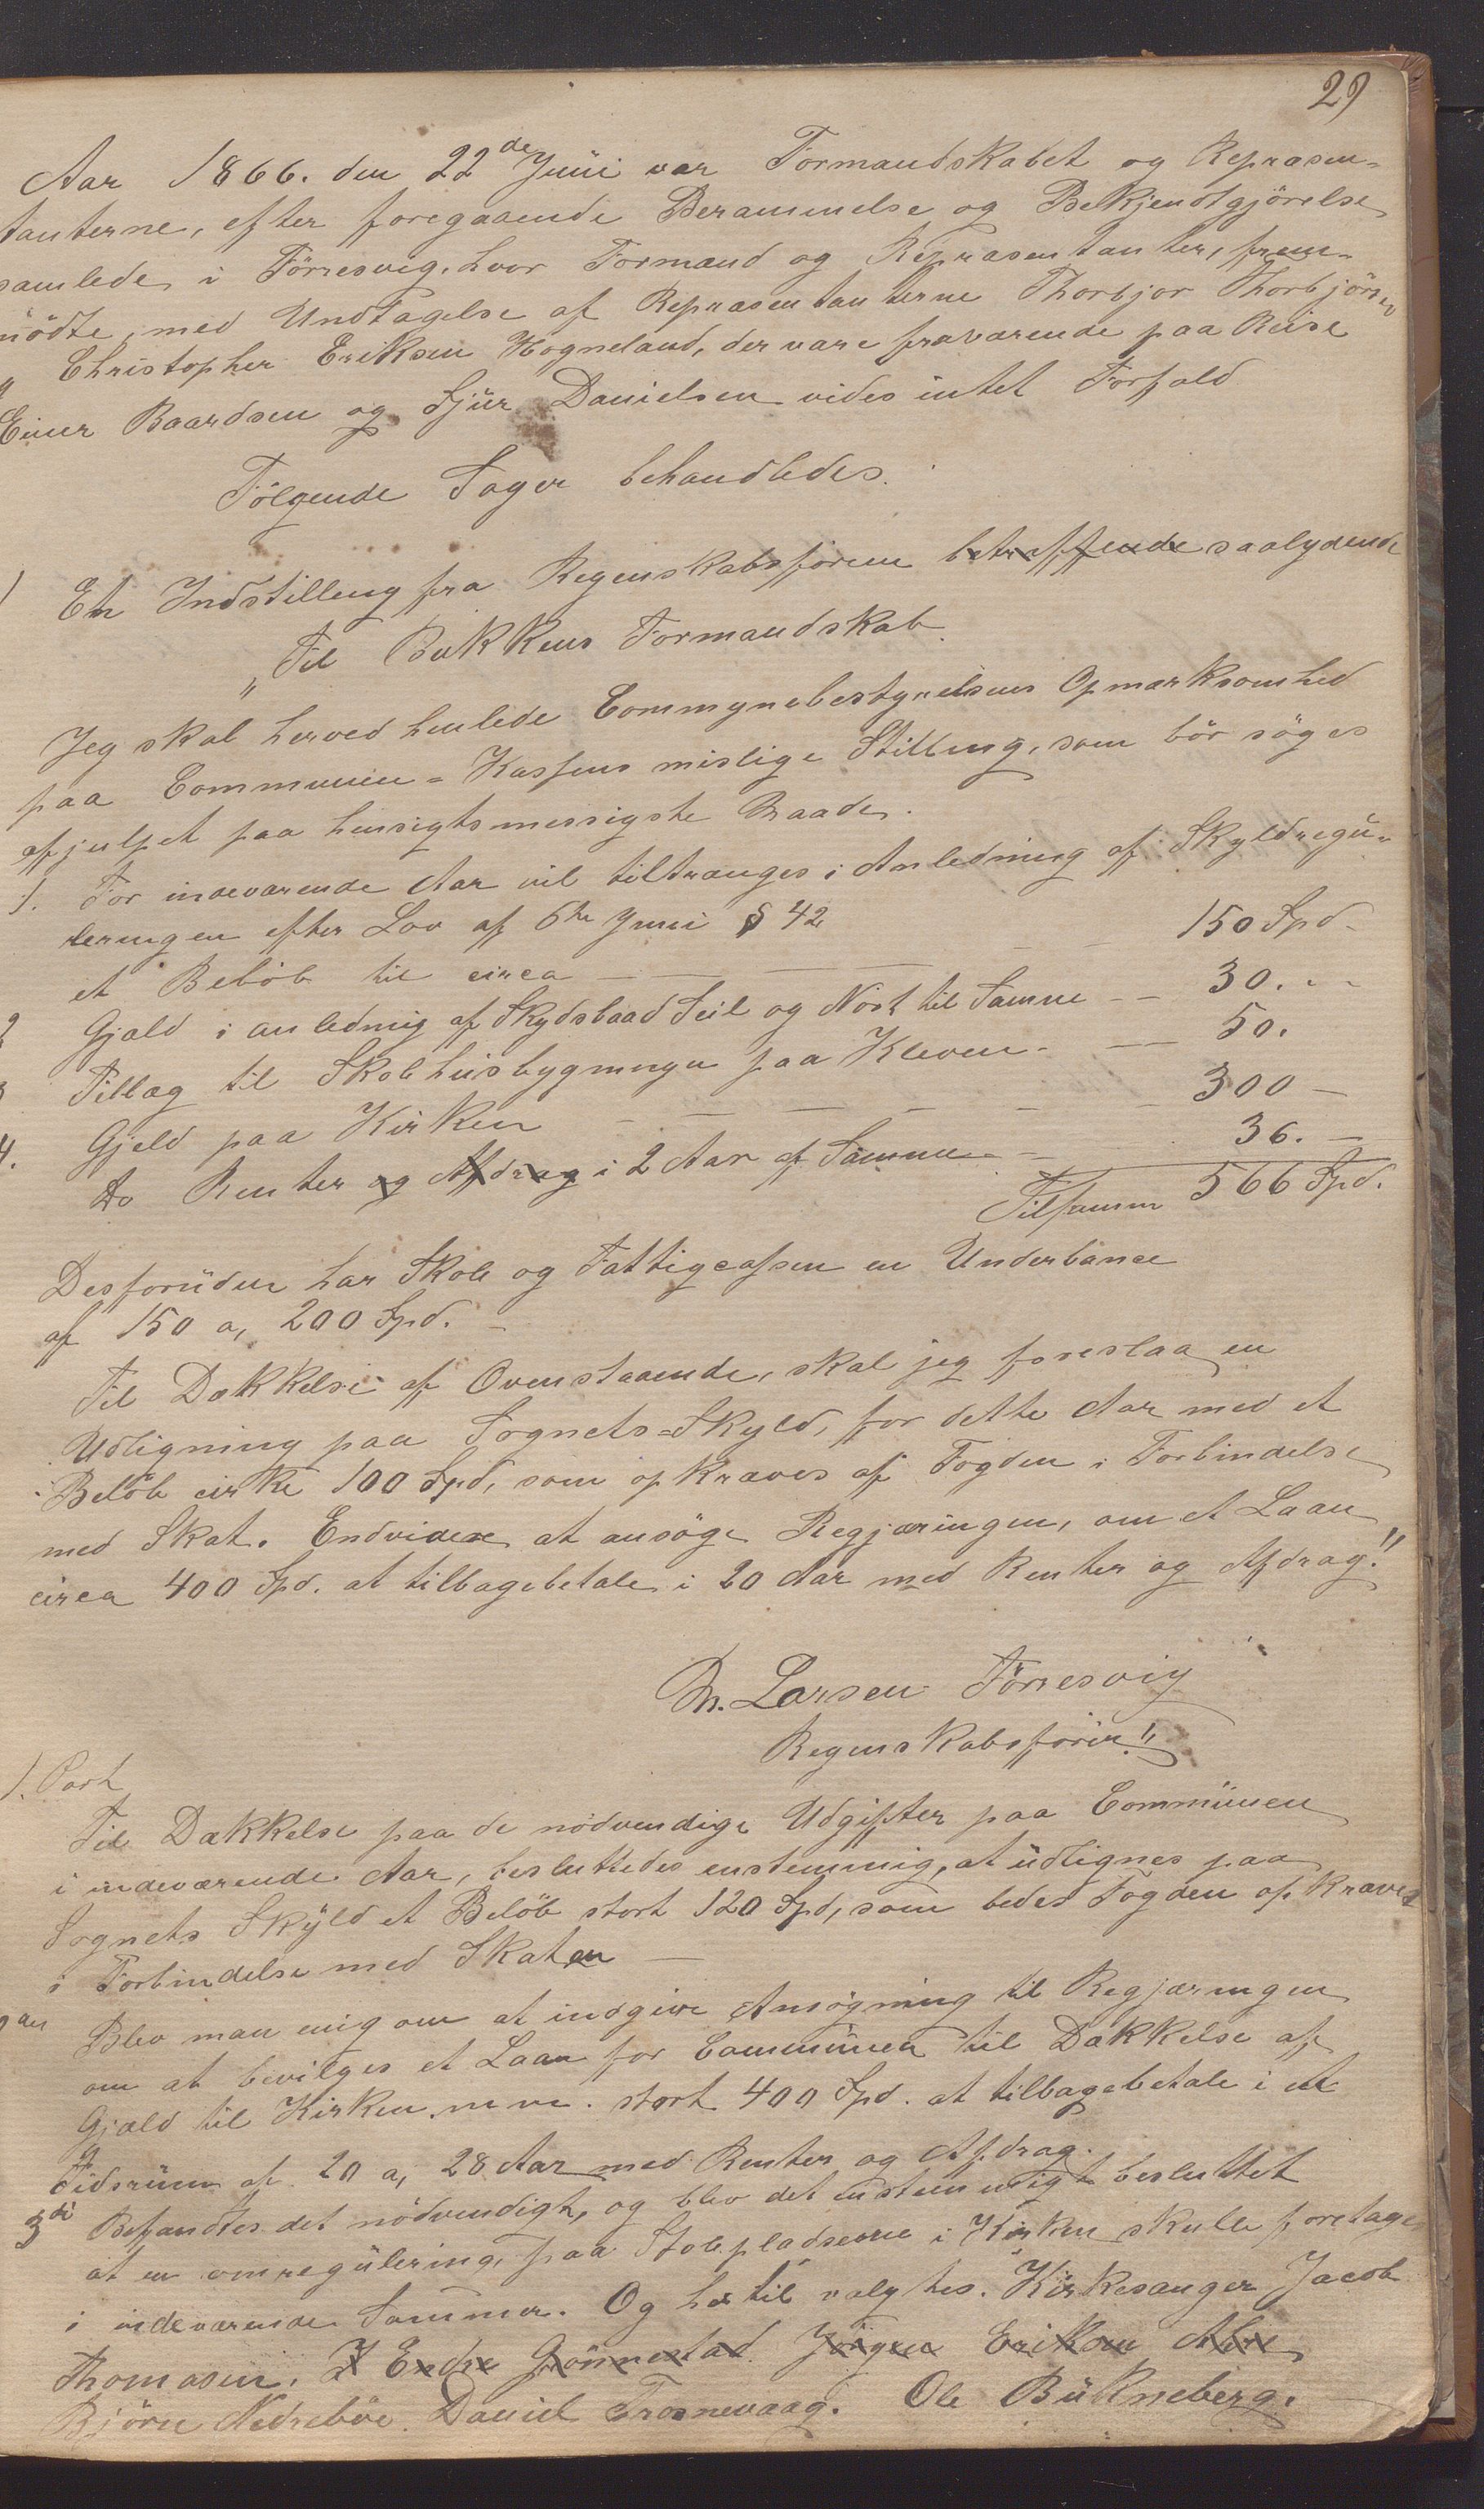 29
Aar 1866. den 22de Juni var Formandskabet og Repræsen-
tanterne, efter foregaaende Berammelse og Bekjendtgjörelse
samlede i Förresvig, hvor Formænd og Repræsentanter, frem-
mödte, med Undtagelse af Repræsentanterne Thorbjor Thorbjörsen
Christopher Eriksen Hogneland, der vare fraværende paa Reise
Einer Baardsen og Sjur Danielsen vides intet Forfald
Fölgende Sager behandledes.
En Indstilleng fra Regenskabsförren betreffende saalydende
„Til Bukkens Formandskab
Jeg skal herved henlede Commynebestyrelsens Opmærksomhed
paa Communen-Kassens mislige Stilling, som bör söges
afjulpet paa hensigtsmessigste Maade.
1. For indeværende Aar vil tiltrænges i Anledning af Skyldregu-
leringen efter Lov af 6te Juni § 42
et Belöb til circa — — — — — 150 Spd.
2 Gjæld i anledning af Skydsbaad Seil og Nöst til Samme — — 30. —
3 Tillæg til Skolehusbygningen paa Kleven — — 50.
4. Gjeld paa Kirken — — — — — 300 —
Do Renter og Afdrag i 2 Aar af Samme — 36. —
Tilsamm 566 Spd.
Desforuden har Skole og Fattigcassen en Underbance
af 150 a, 200 Spd. —
Til Dækkelse af Ovenstaaende, skal jeg foreslaa en
Udligning paa Sognets-Skyld, for dette Aar med et
Belöb cirke 100 Spd, som opkræves af Fogden i Forbindelse
med Skat. Endvidere at ansöge Regjæringen, om et Laan
circa 400 Spd. at tilbagebetale i 20 Aar med Renter og Afdrag."
M. Larsen Förresvig
Regenskabsförer"
1. Post
Til Dækkelse paa de nödvendige Udgifter paa Communen
i indeværende Aar, besluttedes enstemmig, at udlignes paa
Sognets Skyld et Belöb stort 120 Spd, som bedes Fogden opkræves
i Forbindelse med Skaten —
2den Blev man enig om at indgive Ansögning til Regjæringen
om at bevilges et Laan for Communen til Dækkelse af
Gjæld til Kirken m.m. stort 400 Spd. at tilbagebetale i et
Tidsrum af 20 a, 28 Aar med Renter og Afdrag.
3di Befandtes det nödvendigt, og blev det enstemmigt besluttet
at en omregulering, paa Stolepladserne i Kirken skulle foretages
i indeværende Sommer. Og hertil valgtes. Kirkesanger Jacob
Thomasen. I Endre Grönnestad. Jörgen Eriksen Alne
Björn Nedreböe. David Trosnevaag. Ole Bükneberg.